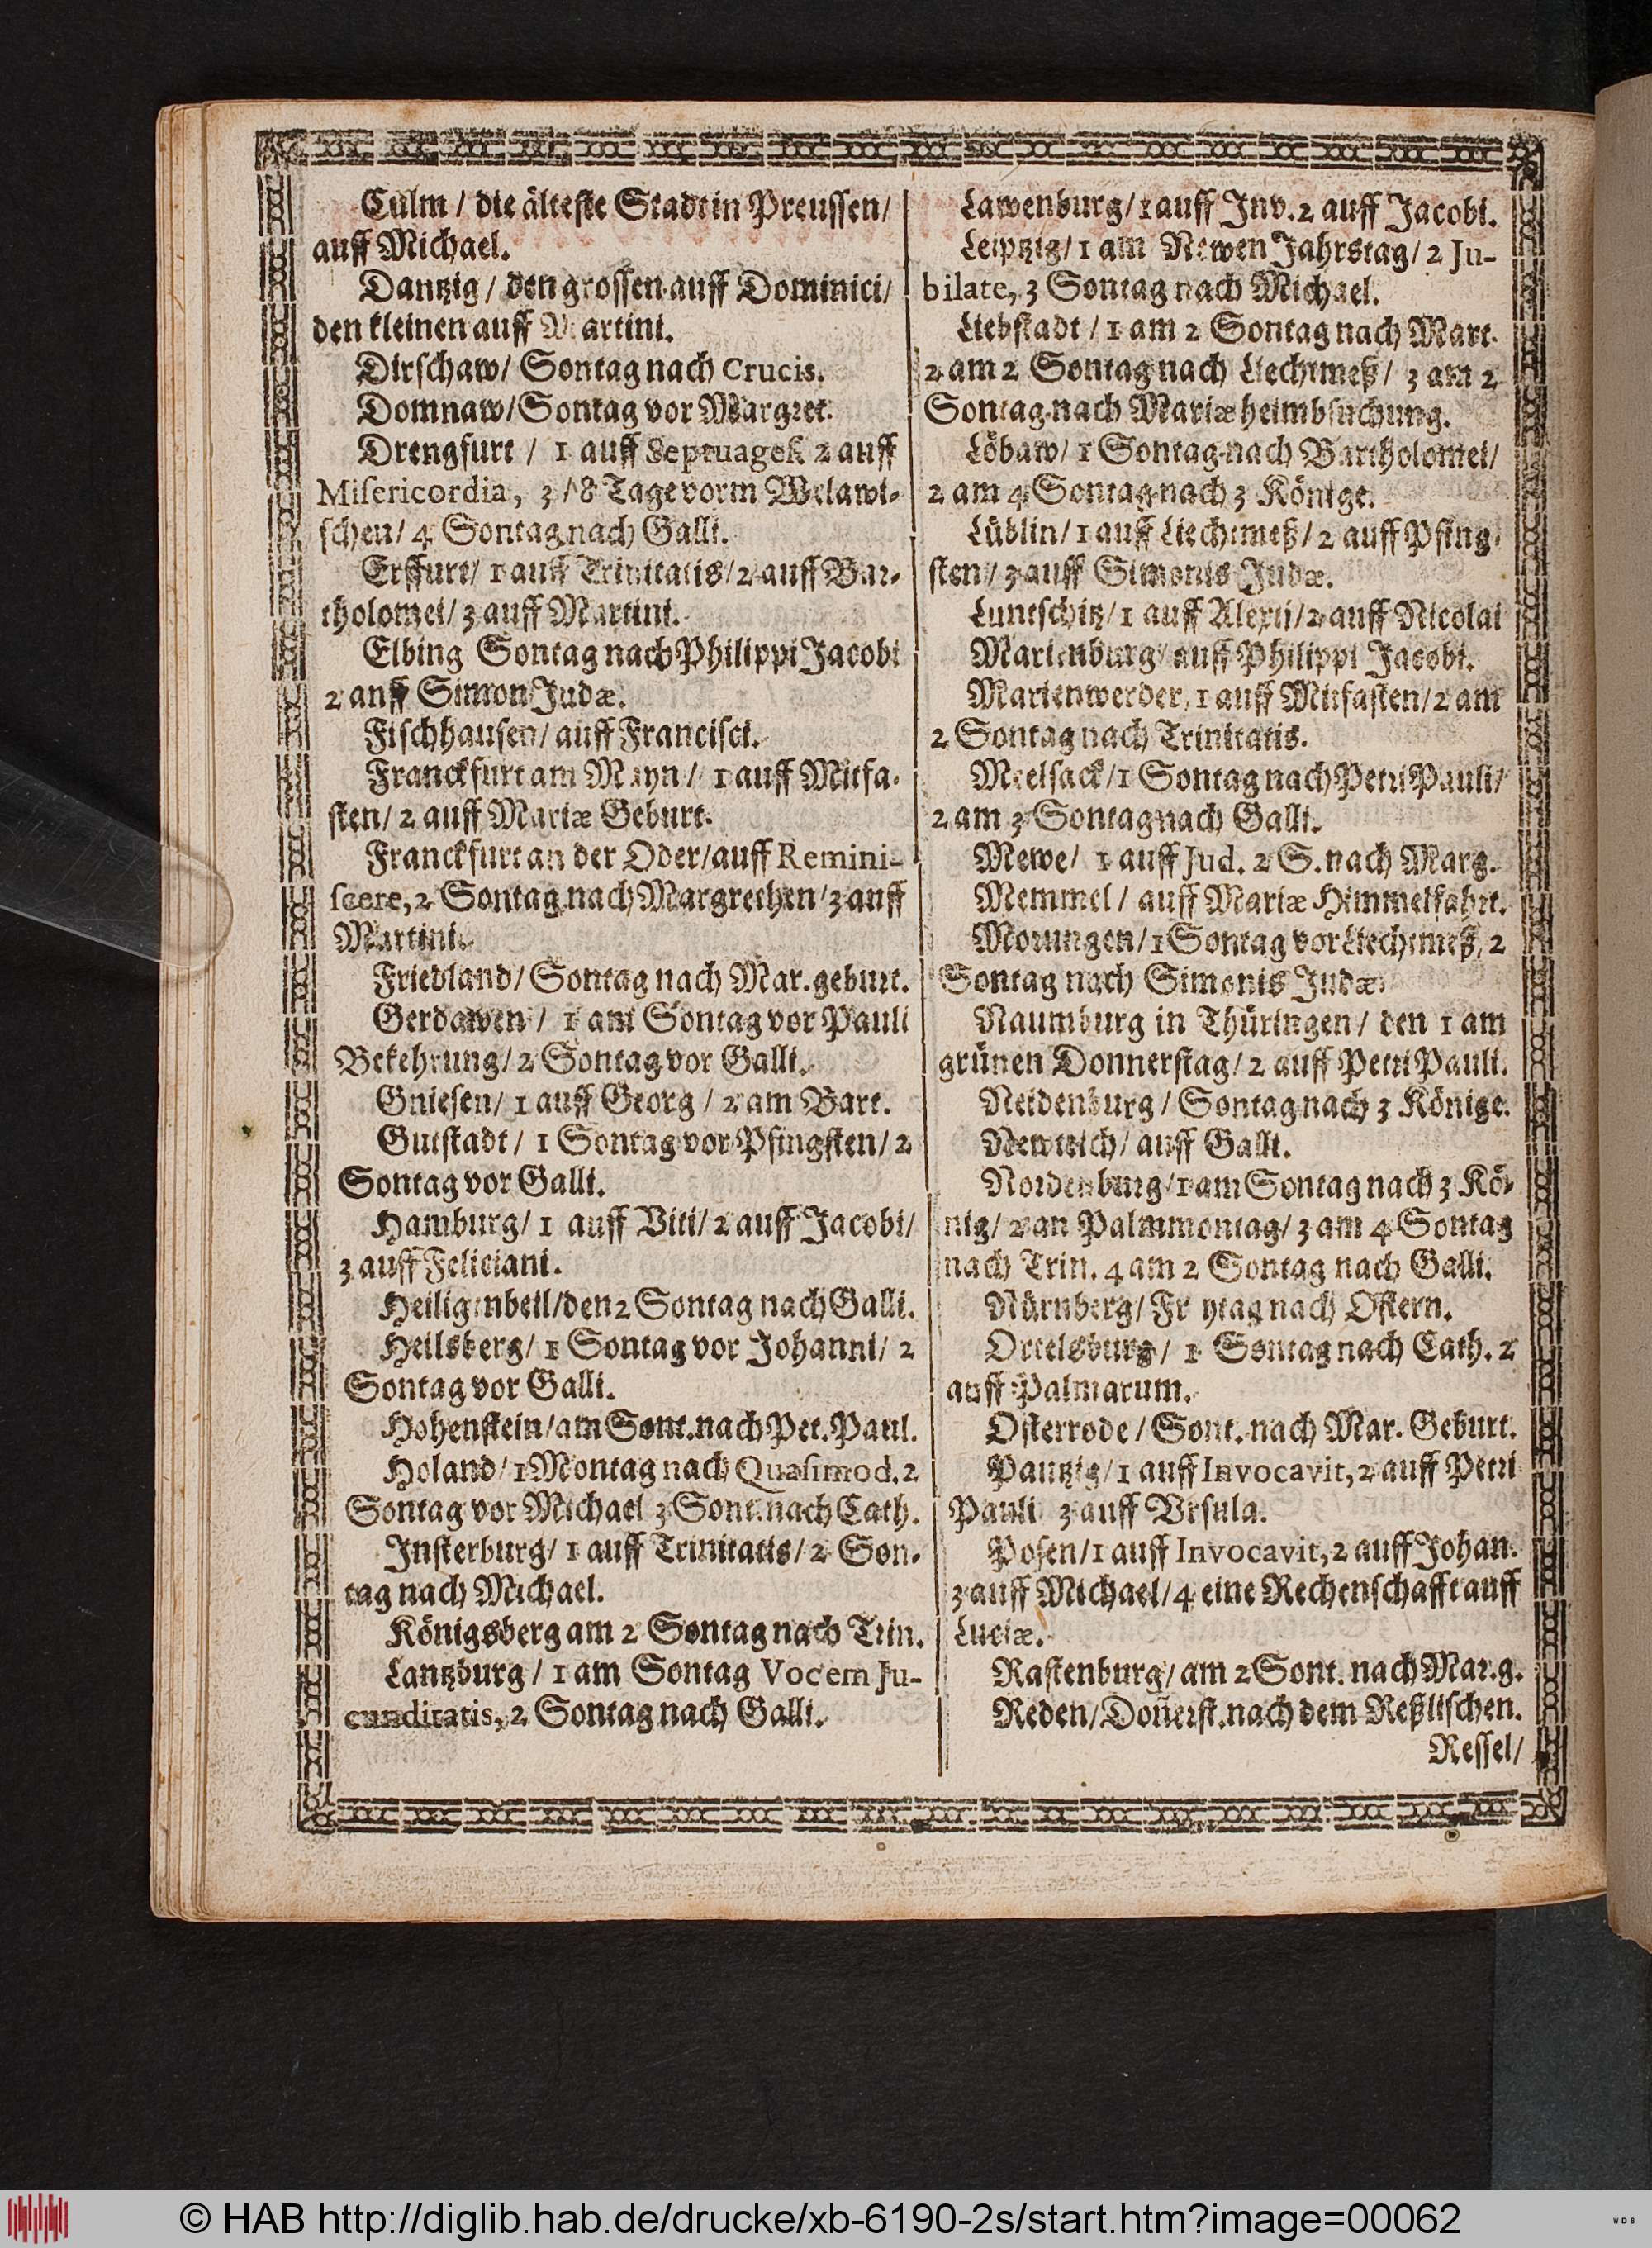 Culm / die älteste Stadt in Preussen/
auff Michael.
Dantzig / den grossen auff Dominici/
den kleinen auff Martini.
Dirschaw/ Sontag nach Crucis.
Domnaw/ Sontag vor Margret.
Drengfurt / 1 auff Septuages. 2 auff
Misericordia, 3 / 8 Tage vorm Welawi-
schen/ 4 Sontag nach Galli.
Erffurt/ 1 auff Trinitatis/ 2 auff Bar-
tholomei/ 3 auff Martini.
Elbing Sontag nach Philippi Jacobi
2 auff Simon Judæ.
Fischhausen/ auff Francisci.
Franckfurt am Mayn / 1 auff Mitfa-
sten/ 2 auff Mariæ Geburt.
Franckfurt an der Oder/ auff Remini-
scere, 2 Sontag nach Margrethen/ 3 auff
Martini.
Friedland/ Sontag nach Mar. geburt.
Gerdawen / 1 am Sontag vor Pauli
Bekehrung/ 2 Sontag vor Galli.
Gniesen/ 1 auff Georg / 2 am Bart.
Gutstadt / 1 Sontag vor Pfingsten/ 2
Sontag vor Galli.
Hamburg/ 1 auff Viti/ 2 auff Jacobi/
3 auff Feliciani.
Heiligenbeil/ den 2 Sontag nach Galli.
Heilsberg/ 1 Sontag vor Johanni/ 2
Sontag vor Galli.
Hohenstein/ am Sont. nach Pet. Paul.
Holand/ 1 Montag nach Quasimod. 2
Sontag vor Michael 3 Sont. nach Cath.
Insterburg/ 1 auff Trinitatis/ 2 Son-
tag nach Michael.
Königsberg am 2 Sontag nach Trin.
Lantzburg / 1 am Sontag Vocem Ju-
cunditatis, 2 Sontag nach Galli.
Lawenburg/ 1 auff Inv. 2 auff Jacobi.
Leiptzig/ 1 am Newen Jahrstag/ 2 Ju-
bilate, 3 Sontag nach Michael.
Liebstadt / 1 am 2 Sontag nach Mart.
2 am 2 Sontag nach Liechtmeß/ 3 am 2
Sontag nach Mariæ heimbsuchung.
Löbaw/ 1 Sontag nach Bartholomei/
2 am 4 Sontag nach 3 Könige.
Lüblin/ 1 auff Liechtmeß/ 2 auff Pfing-
sten/ 3 auff Simonis Judæ.
Luntschitz/ 1 auff Alexii/ 2 auff Nicolai
Marienburg/ auff Philippi Jacobi.
Marienwerder, 1 auff Mitfasten/ 2 am
2 Sontag nach Trinitatis.
Meelsack/ 1 Sontag nach Petri Pauli/
2 am 3 Sontag nach Galli.
Mewe/ 1 auff Jud. 2 S. nach Marg.
Memmel / auff Mariæ Himmelfahrt.
Morungen/ 1 Sontag vor Liechtmeß, 2
Sontag nach Simonis Judæ.
Naumburg in Thüringen / den 1 am
grünen Donnerstag/ 2 auff Petri Pauli.
Neidenburg / Sontag nach 3 Könige.
Newteich/ auff Galli.
Nordenburg/ 1 am Sontag nach 3 Kö-
nig/ 2 an Palmmontag/ 3 am 4 Sontag
nach Trin. 4 am 2 Sontag nach Galli.
Nürnberg/ Fr ytag nach Ostern.
Ortelsburg / 1 Sontag nach Cath. 2
auff Palmarum.
Osterrode / Sont. nach Mar. Geburt.
Pautzig/ 1 auff Invocavit, 2 auff Petri
Pauli 3 auff Vrsula.
Posen/ 1 auff Invocavit, 2 auff Johan.
3 auff Michael/ 4 eine Rechenschafft auff
Luciæ.
Rastenburg/ am 2 Sont. nach Mar. g.
Reden/ Doñerst. nach dem Reßlischen.
Ressel/
© HAB http://diglib.hab.de/drucke/xb-6190-2s/start.htm?image=00062
WDB